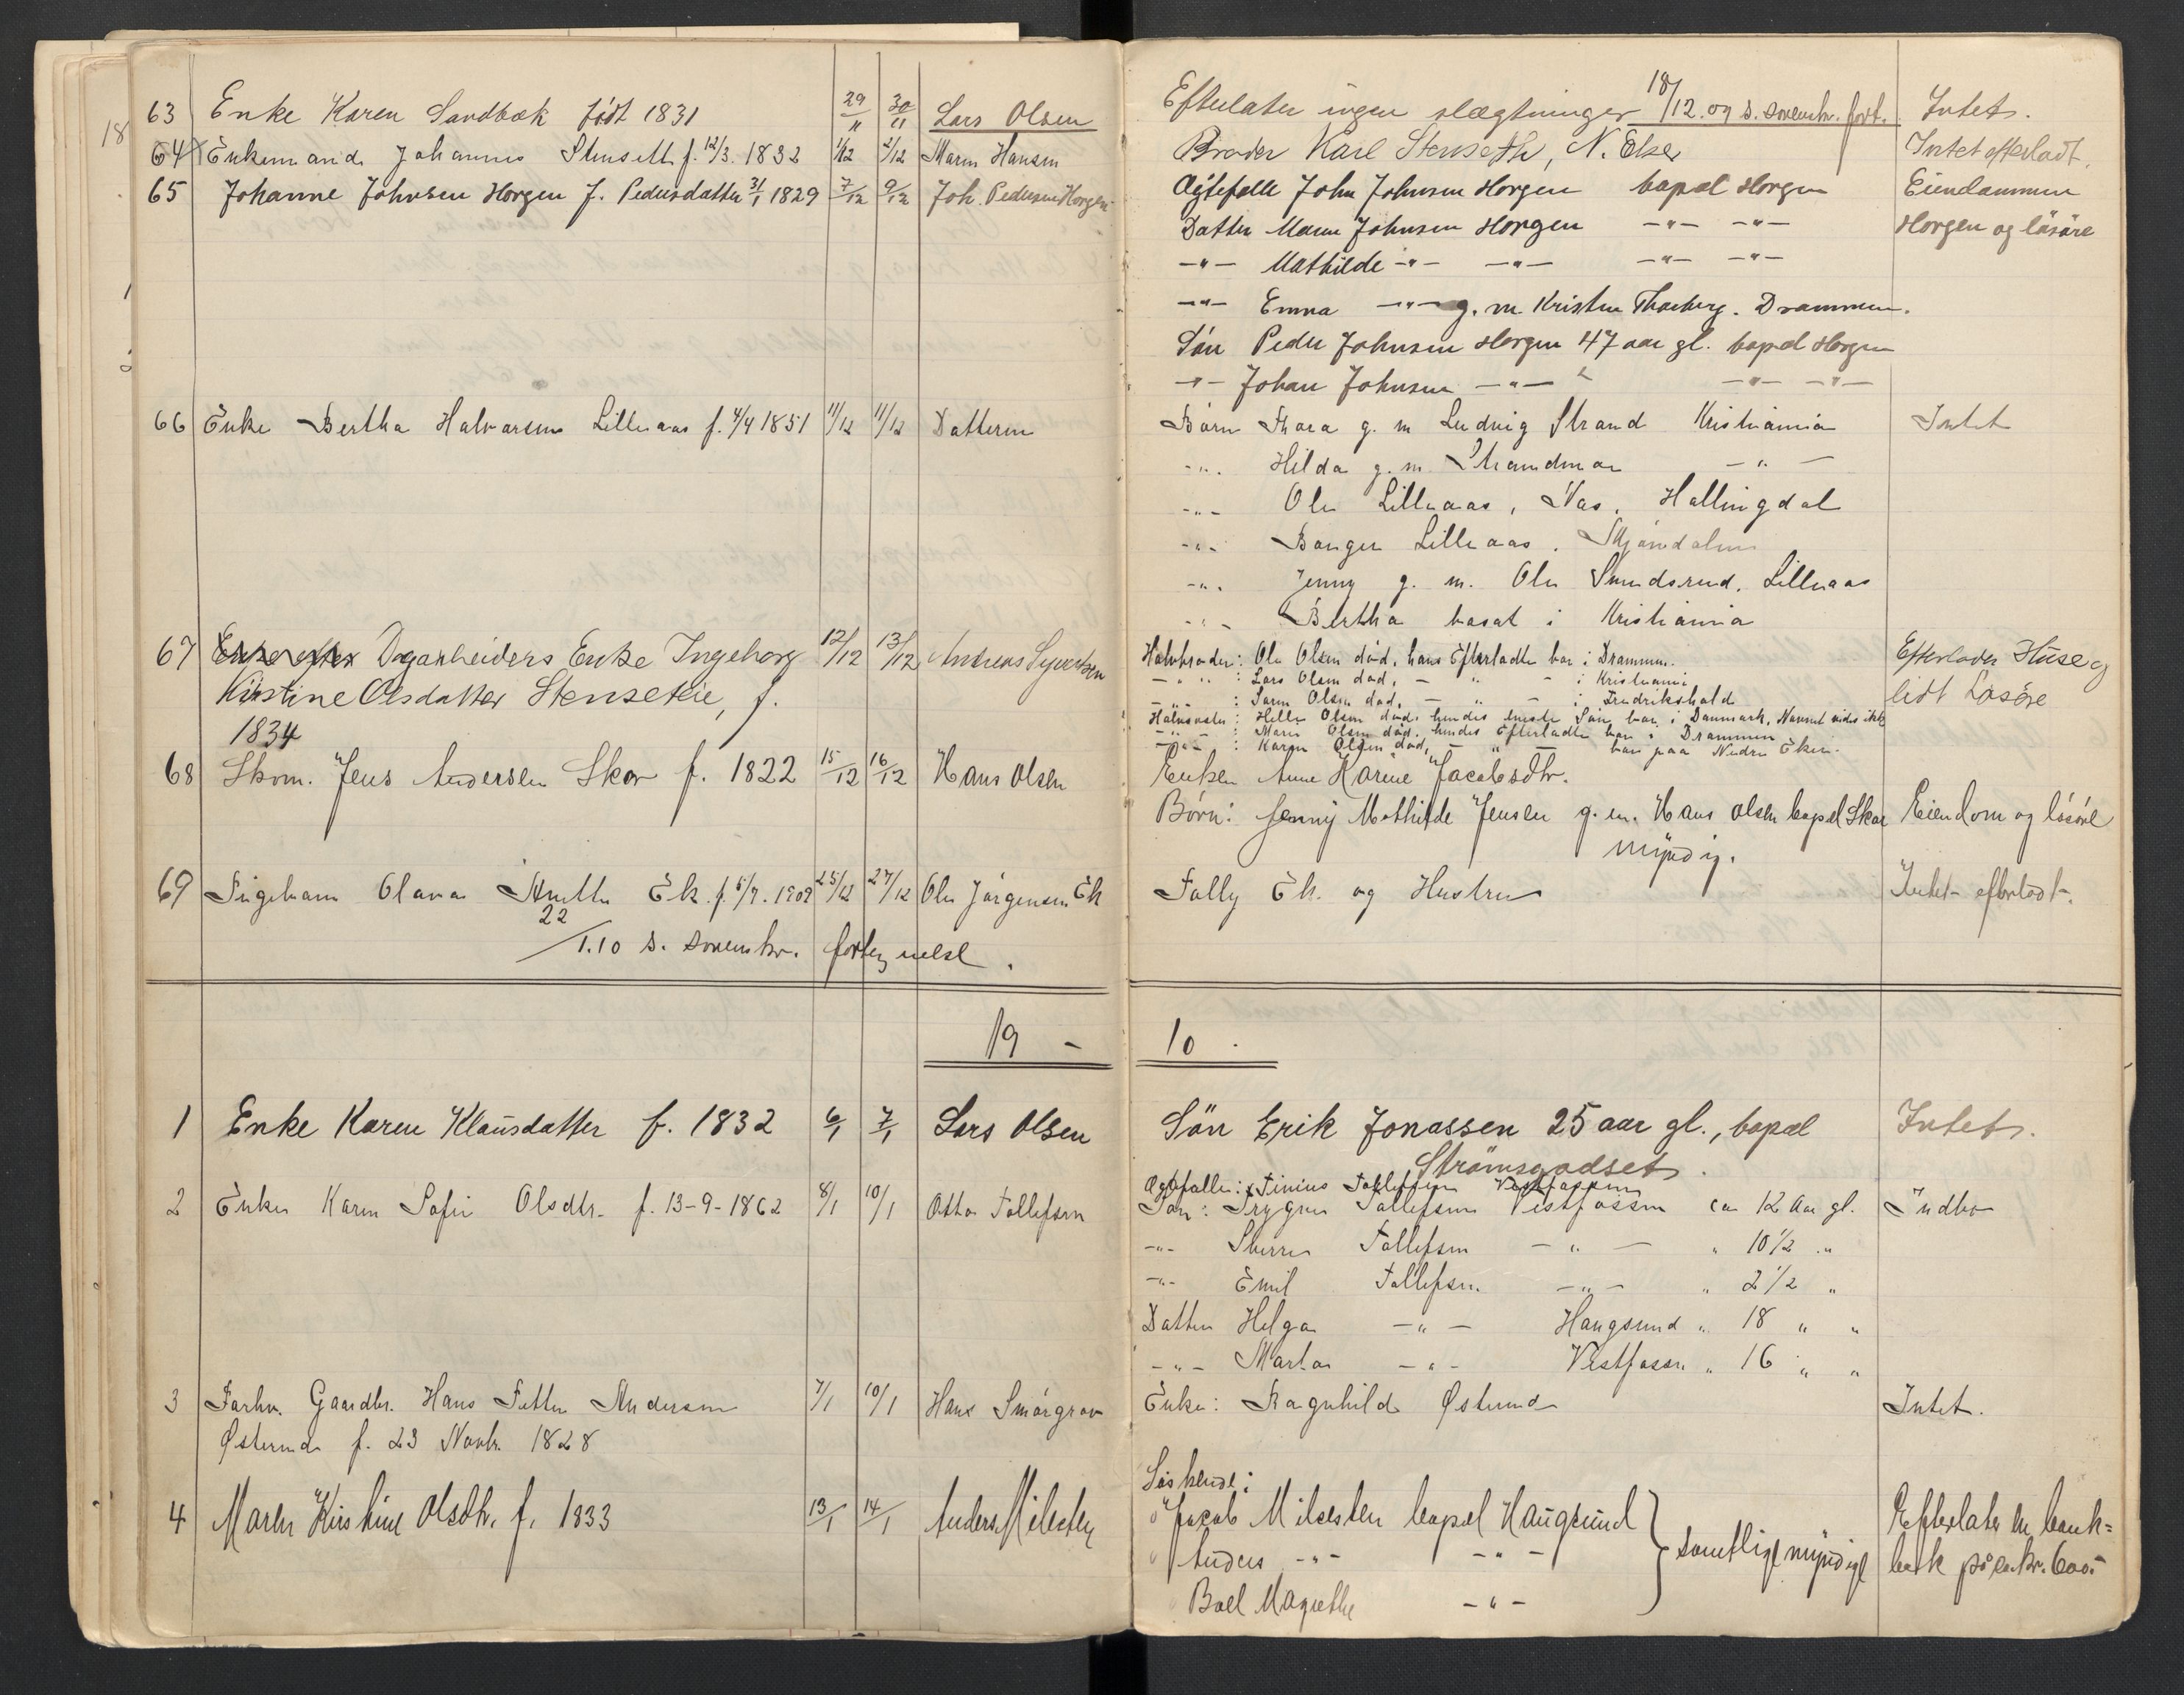 63 Enke Karen Sandbæk født 1831 29/11 30/11 Lars Olsen Efterlater ingen slægtninger 18/12. og s. sorenskr. fort. Intet.
64 Enkemand Johannes Stenseth f. 12/3. 1832 1/12 2/12 Maren Hansen Broder Karl Stenseth, N. Eker Intet efterladt.
65 Johanne Johnsen Horgen f. Pedersdatter 31/1 1829 7/12 9/12 Joh. Pedersen Horgen Ægtefelle John Johnsen Horgen bopæl Horgen Eiendommen
Datter Maren Johnsen Horgen -"- -"- Horgen og løsøre
-"- Mathilde -"- -"- -"- -"-
-"- Emma -"- g. m. Kristen Thorberg. Drammen.
Søn Peder Johnsen Horgen 47 aar gl. bopæl Horgen
-"- Johan Johnsen -"- -"- -"-
66 Enke Bertha Halvorsen Lilleaas f. 4/4 1851 11/12 11/12 Datteren Børn Thora g. m Ludvig Strand Kristiania Intet
-"- Hilda g. m. Strandmoe -"-
-"- Ole Lilleaas, Næs, Hallingdal
-"- Borger Lilleaas. Mjøndalen
-"- Jenny g. m. Ole Smedsrud, Lilleaas
-"- Bertha bosat i Kristiania
67 Dagarbeiders Enke Ingeborg 12/12 13/12 Andreas Syvertsen Halvbroder: Ole Olsen død, hans Efterladte bor i Drammen. Efterlader Huse og
-"- : Lars Olsen død, -"- i Kristiania
Kirstine Olsdatter Stenseteie, f. -"- : Søren Olsen død, -"- i Fredrikshald lidt Løsøre
Halvsøster: Helle Olsen død, hendes eneste Søn bor i Danmark, Navnet vides ikke
1834 -"- : Maren Olsen død, hendes Efterladte bor i Drammen
-"- : Karen Olsen død, -"- bor paa Nedre Eker.
68 Skom. Jens Andersen Skar f. 1822 15/12 16/12 Hans Olsen Enken Anne Karine Jacobsdtr.
Børn: Jenny Mathilde Jensen g. m. Hans Olsen bopæl Skar Eiendom og løsøre
myndig.
69 Ingeborg Olava Anette Ek f. 5/7. 1909 25/12 27/12 Ole Jørgensen Ek Tolly Ek. og Hustru Intet efterladt.
22/1.10 s. sorenskr. fortegnelse.
19 - 10.
1 Enke Karen Klausdatter f. 1832 6/1 7/1 Lars Olsen Søn Erik Jonassen 25 aar gl., bopæl Intet.
Strømsgodset.
Ægtefælle: Tinius Tollefsen Vestfossen
2 Enke Karen Sofie Olsdtr. f. 13-9-1862 8/1 10/1 Otto Tollefsen Søn: Trygve Tollefsen Vestfossen ca 12 Aar gl. Indbo
-"- Sverre Tollefsen -"- " 10 1/2 "
-"- Emil Tollefsen -"- " 2 1/2 "
Datter Helga -"- Haugsund " 18 " "
-"- Marta -"- Vestfossen " 16 " "
3 Forhv. Gaardbr. Hans Petter Andersen 7/1 10/1 Hans Smørgrav Enke: Ragnhild Østerud Intet.
Østerud f. 23 Novbr. 1828
Søskende:
4 Maren Kirstine Olsdtr. f. 1833 13/1 14/1 Anders Milesten Jacob Milesten bopæl Haugsund Efterlater en bank=
Anders -"- -"- } samtlige myndige bok på ca kr. 600.-
Boel Magrethe -"-